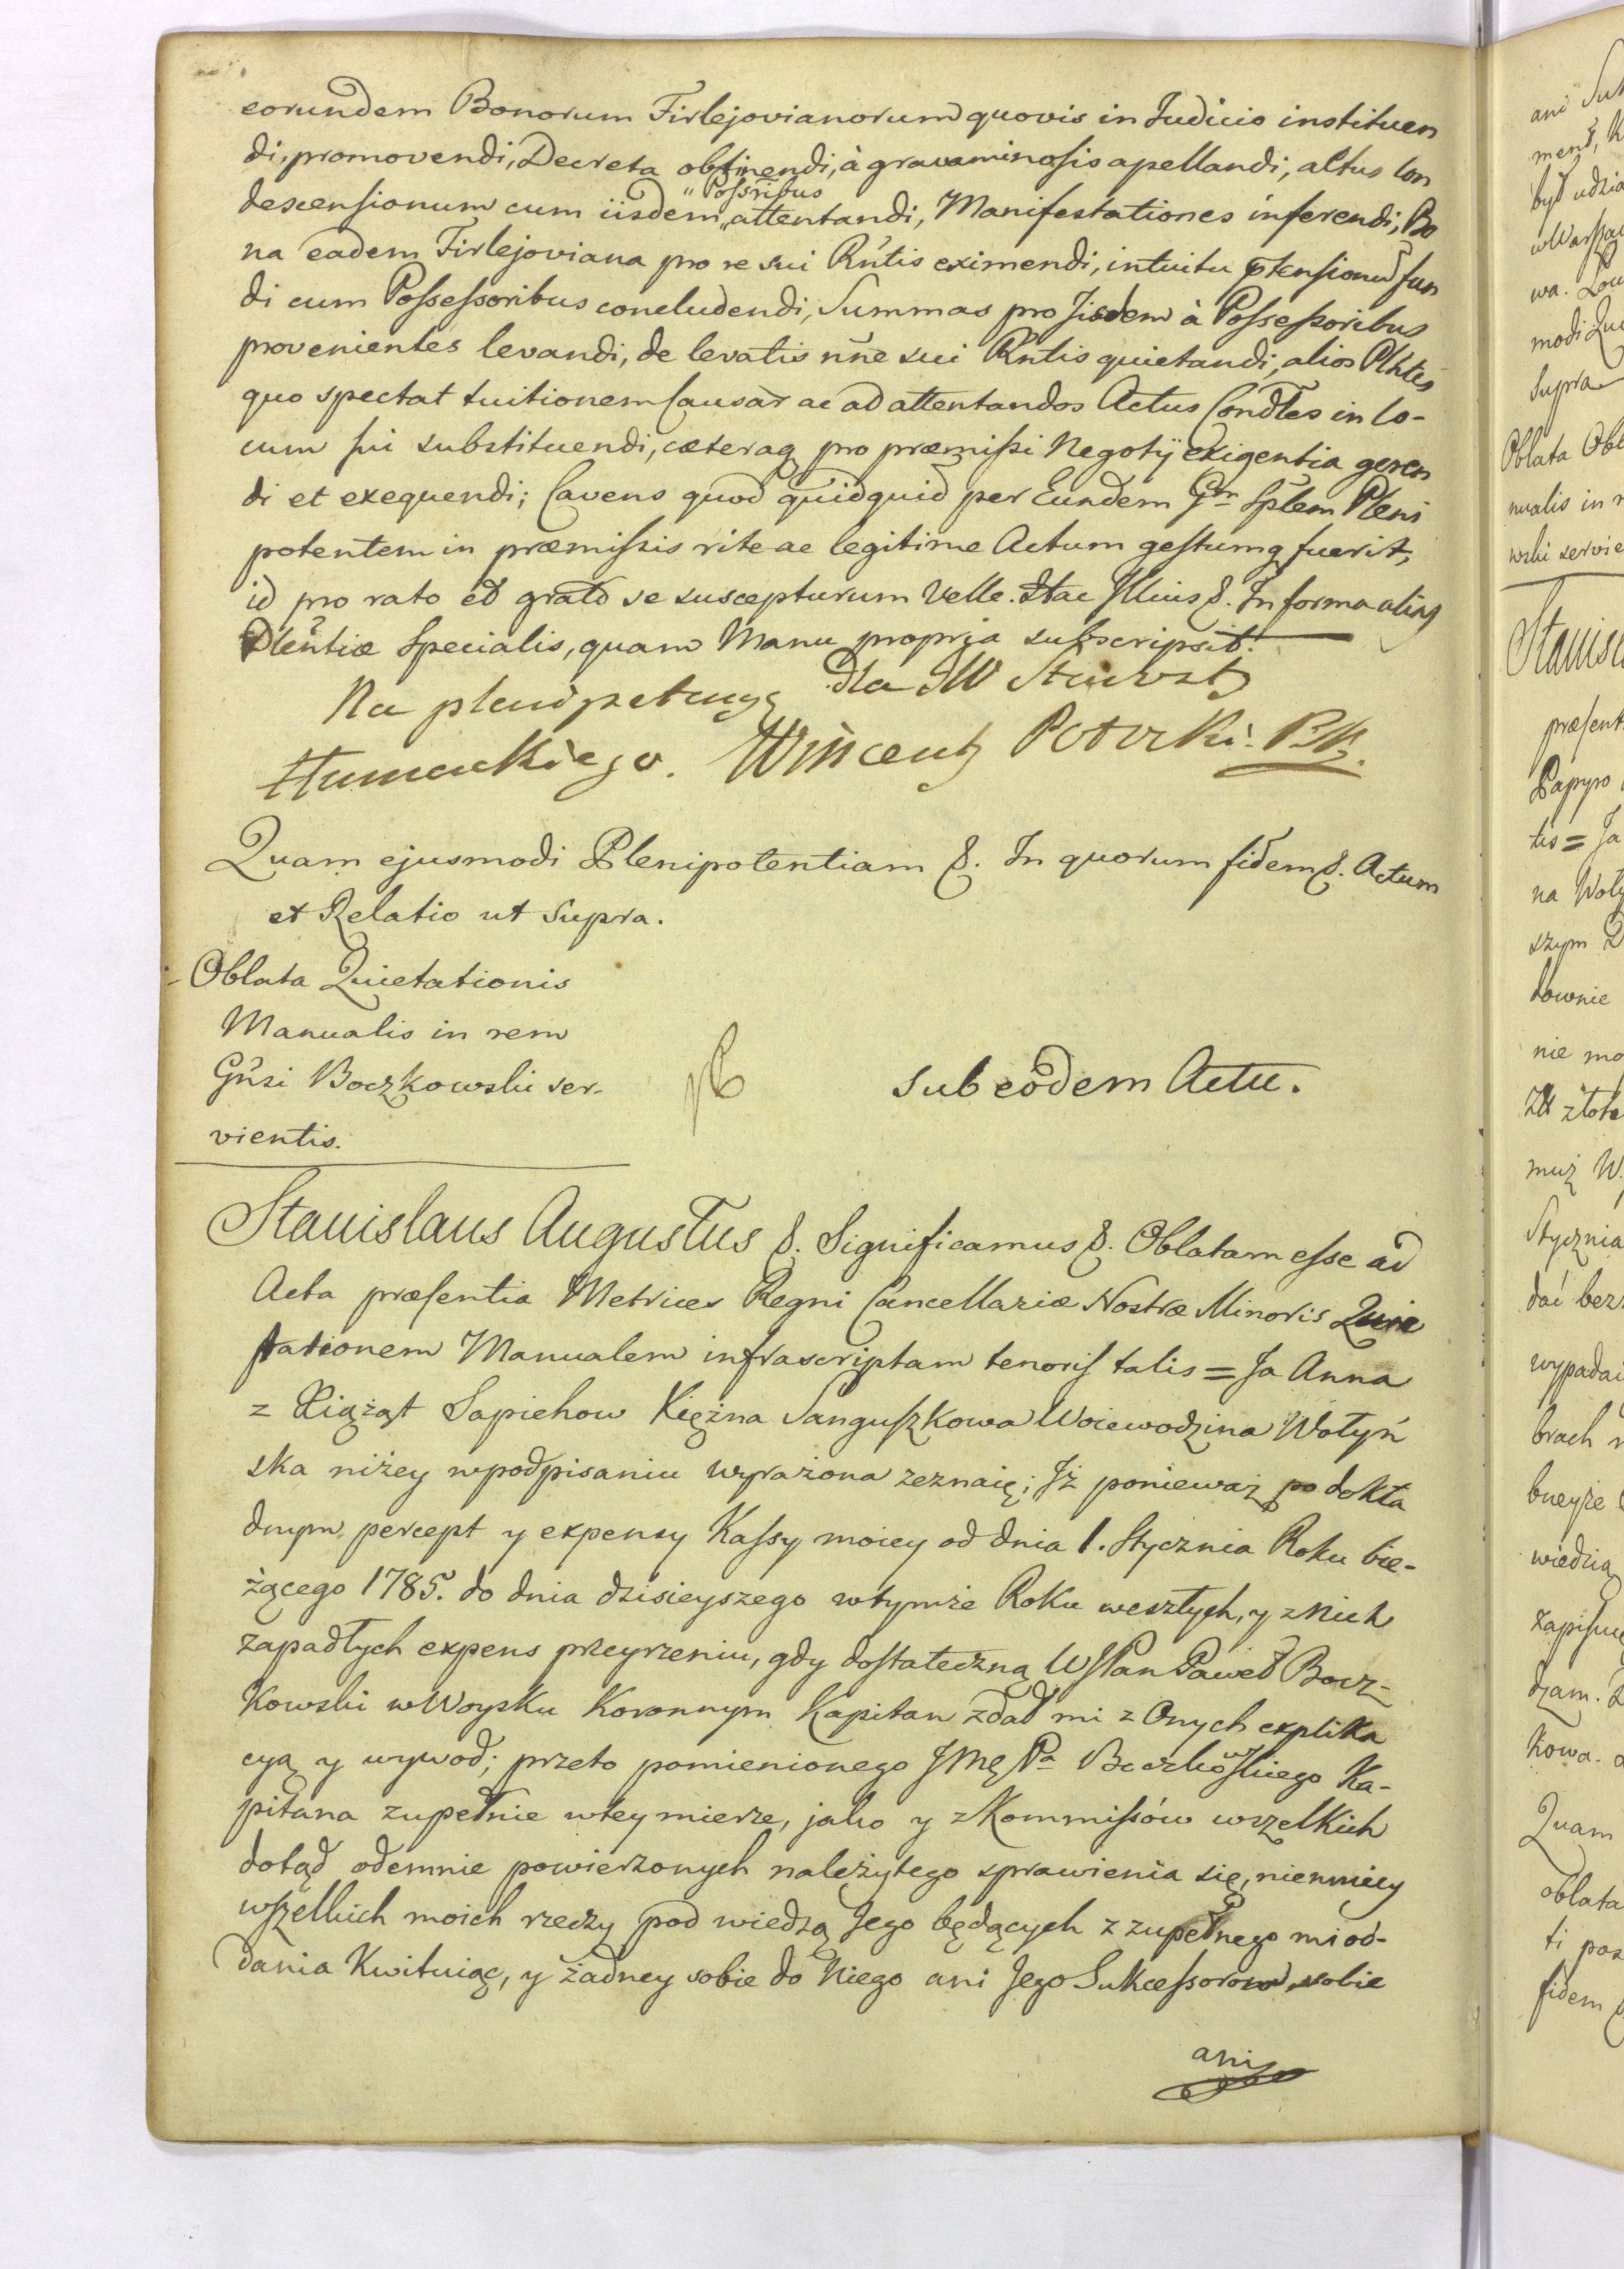 eorundem Bonorum Firlejovianorum quovis in Judicio instituen
di, promovendi, Decreta obtinendi, à gravaminosis apellandi, altus Con
descensionum cum iisdem „Possribus attentandi, Manifestationes inferendi, Bo
na eadem Firlejoviana pro re sui Rntis eximendi, intuitu ptensionu fun
di cum Possessoribus concludendi, Summas pro Jisdem à Possessoribus
provenientes levandi, de levatis nne sui Rntis quietandi, alios Plntes
quo spectat tuitionem Causar ac ad attentandos Actus Condles in lo-
cum sui substituendi, cæteraq pro præmissi Negotÿ exigentia geren
di et exequendi; Cavens quod quidquid per Eundem Gm Splem Pleni
potentem in præmissis rite ac legitime Actum gestumq fuerit,
id pro rato et grato se suscepturum Velle. Stae Jllius &. In forma alias
Plentiæ Specialis, quam Manu propria subscripsit.
Na plenipotencyą dla JW Starosty
Humeckiego. Wincenty Potocki. PK.
Quam ejusmodi Plenipotentiam &. In quorum fidem &. Actum
et Relatio ut Supra.
Oblata Quietationis
Manualis in rem
Gnsi Boczkowski ser-
vientis.
sub eodem Actu.
Stanislaus Augustus &. Significamus &. Oblatam esse ad
Acta præsentia Metrices Regni Cancellariæ Nostræ Minoris Quie
tationem Manualem infrascriptam tenoris talis = Ja Anna
z Xiążąt Sapiehow Xiężna Sanguszkowa Woiewodzina Wołyń
ska niżey wpodpisaniu wyrażona zeznaię; Jż ponieważ po dokła
dnym percept y expensy Kassy moiey od dnia 1. Stycznia Roku bie-
żącego 1785. do dnia dzisieyszego wtymże Roku weszłych, y z nich
zapadłych expens przeyrzeniu, gdy dostateczną WJPan Paweł Bocz-
kowski w Woysku Koronnym Kapitan zdał mi z Onych explika
cyą y wywod; przeto pomienionego JMę Pa Boczkowskiego Ka-
pitana zupełnie wtey mierze, jako y z Kommissów wszelkich
dotąd odemnie powierzonych należytego sprawienia się, niemniey
wszelkich moich rzeczy pod wiedzą Jego będących z zupełnego mi od-
dania Kwituiąc, y żadney sobie do Niego ani Jego Sukcessorow sobie
ani